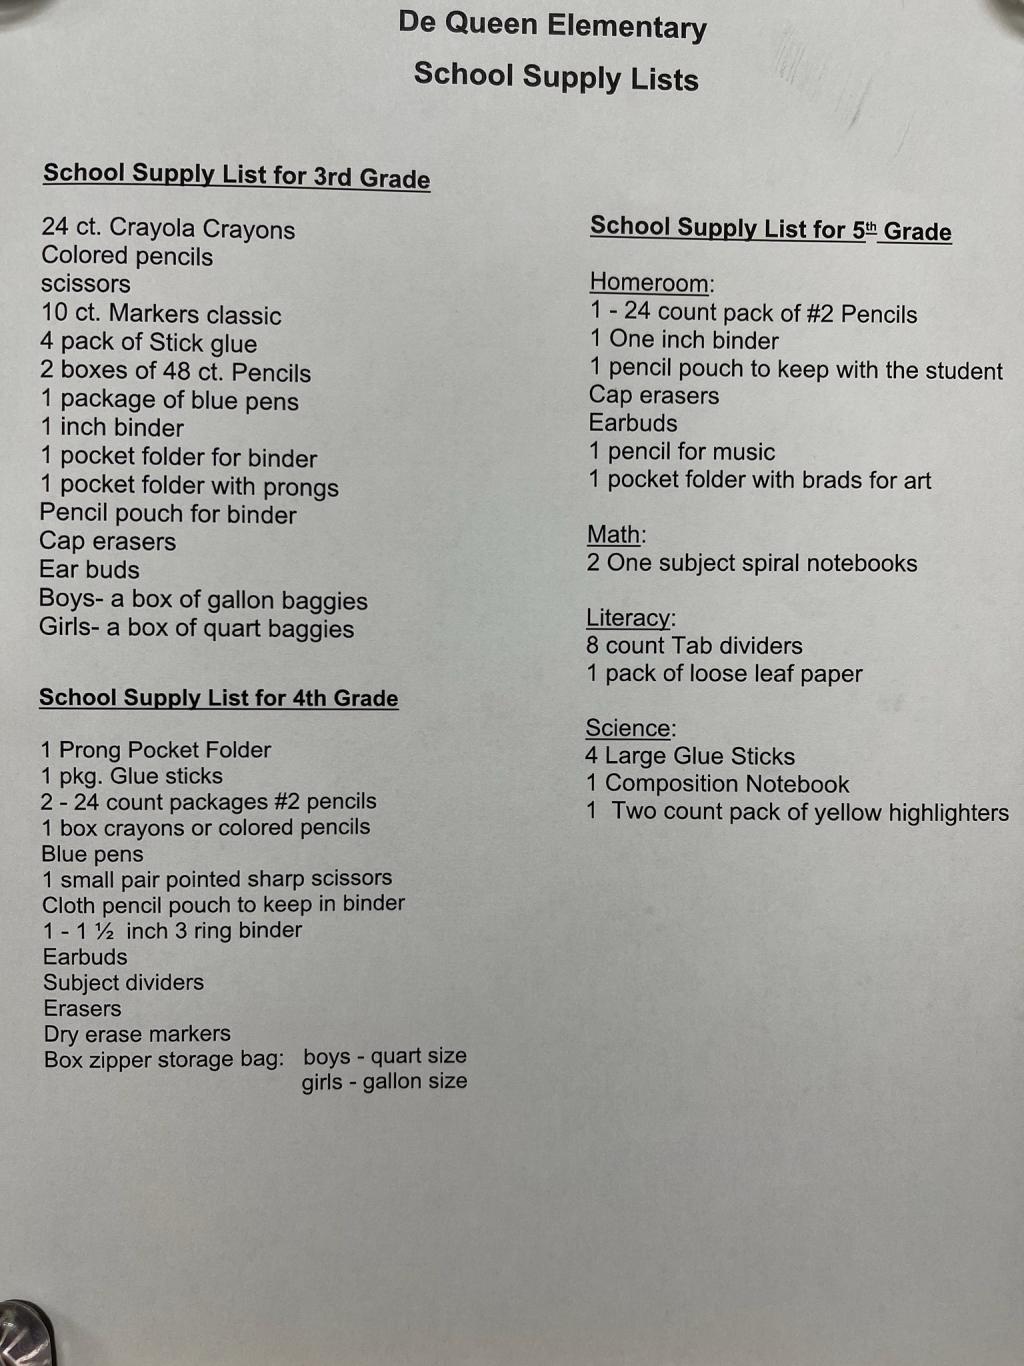 De Queen Elementary
School Supply Lists
School Supply List for 3rd Grade
24 ct. Crayola Crayons
Colored pencils
scissors
10 ct. Markers classic
4 pack of Stick glue
2 boxes of 48 ct. Pencils
1 package of blue pens
1 inch binder
1 pocket folder for binder
1 pocket folder with prongs
Pencil pouch for binder
Cap erasers
Ear buds
Boys- a box of gallon baggies
Girls- a box of quart baggies
School Supply List for 4th Grade
1 Prong Pocket Folder
1 pkg. Glue sticks
2 - 24 count packages #2 pencils
1 box crayons or colored pencils
Blue pens
1 small pair pointed sharp scissors
Cloth pencil pouch to keep in binder
1 - 1 ½ inch 3 ring binder
Earbuds
Subject dividers
Erasers
Dry erase markers
Box zipper storage bag: boys - quart size
girls - gallon size
School Supply List for 5th Grade
Homeroom:
1 - 24 count pack of #2 Pencils
1 One inch binder
1 pencil pouch to keep with the student
Cap erasers
Earbuds
1 pencil for music
1 pocket folder with brads for art
Math:
2 One subject spiral notebooks
Literacy:
8 count Tab dividers
1 pack of loose leaf paper
Science:
4 Large Glue Sticks
1 Composition Notebook
1 Two count pack of yellow highlighters